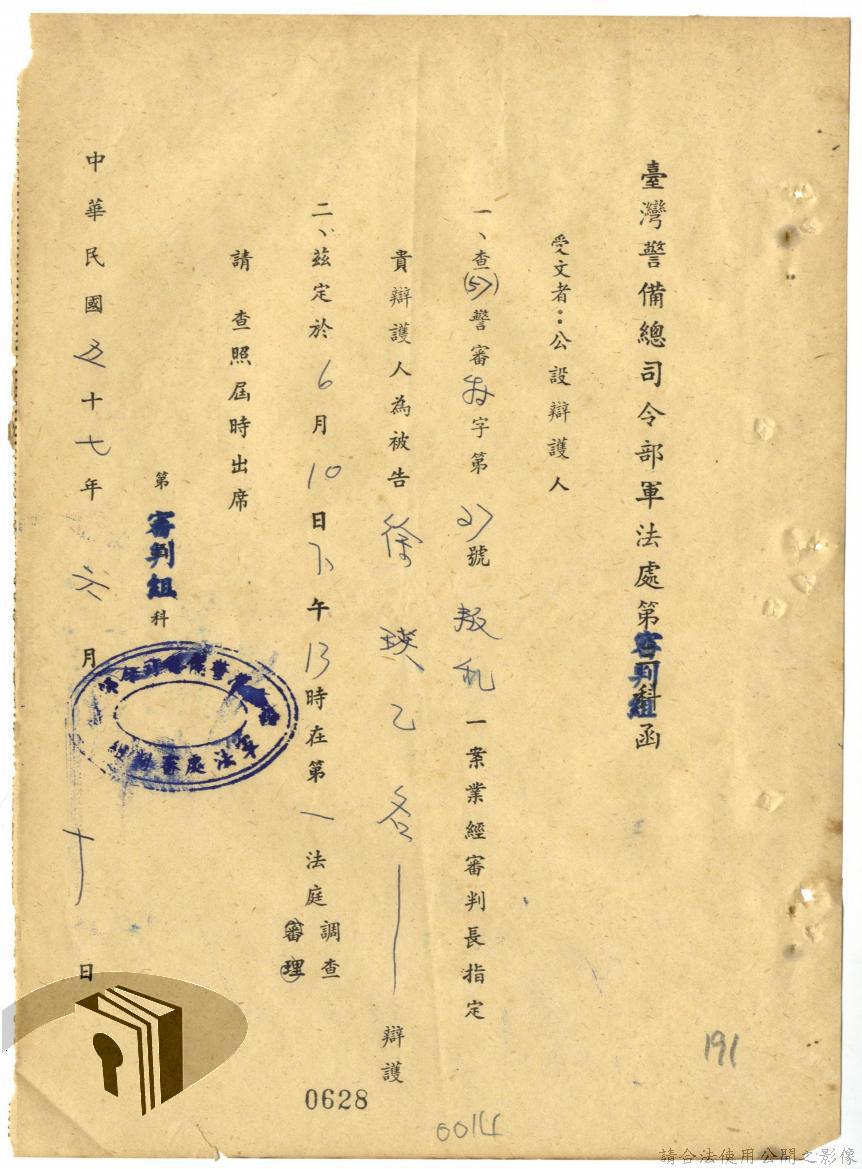 臺灣警備總司令部軍法處第審判組科函
受文者：公設辯護人
一、查(57)警審字第27號叛乱一案業經審判長指定
貴辯護人為被告徐瑛乙名辯護
二、茲定於6月10日下午13時在第一法庭調查審理
請查照屆時出席
第審判組科
軍法處審判組
中華民國五十七年六月十日
0628
0014
191
請合法使用公開之影像